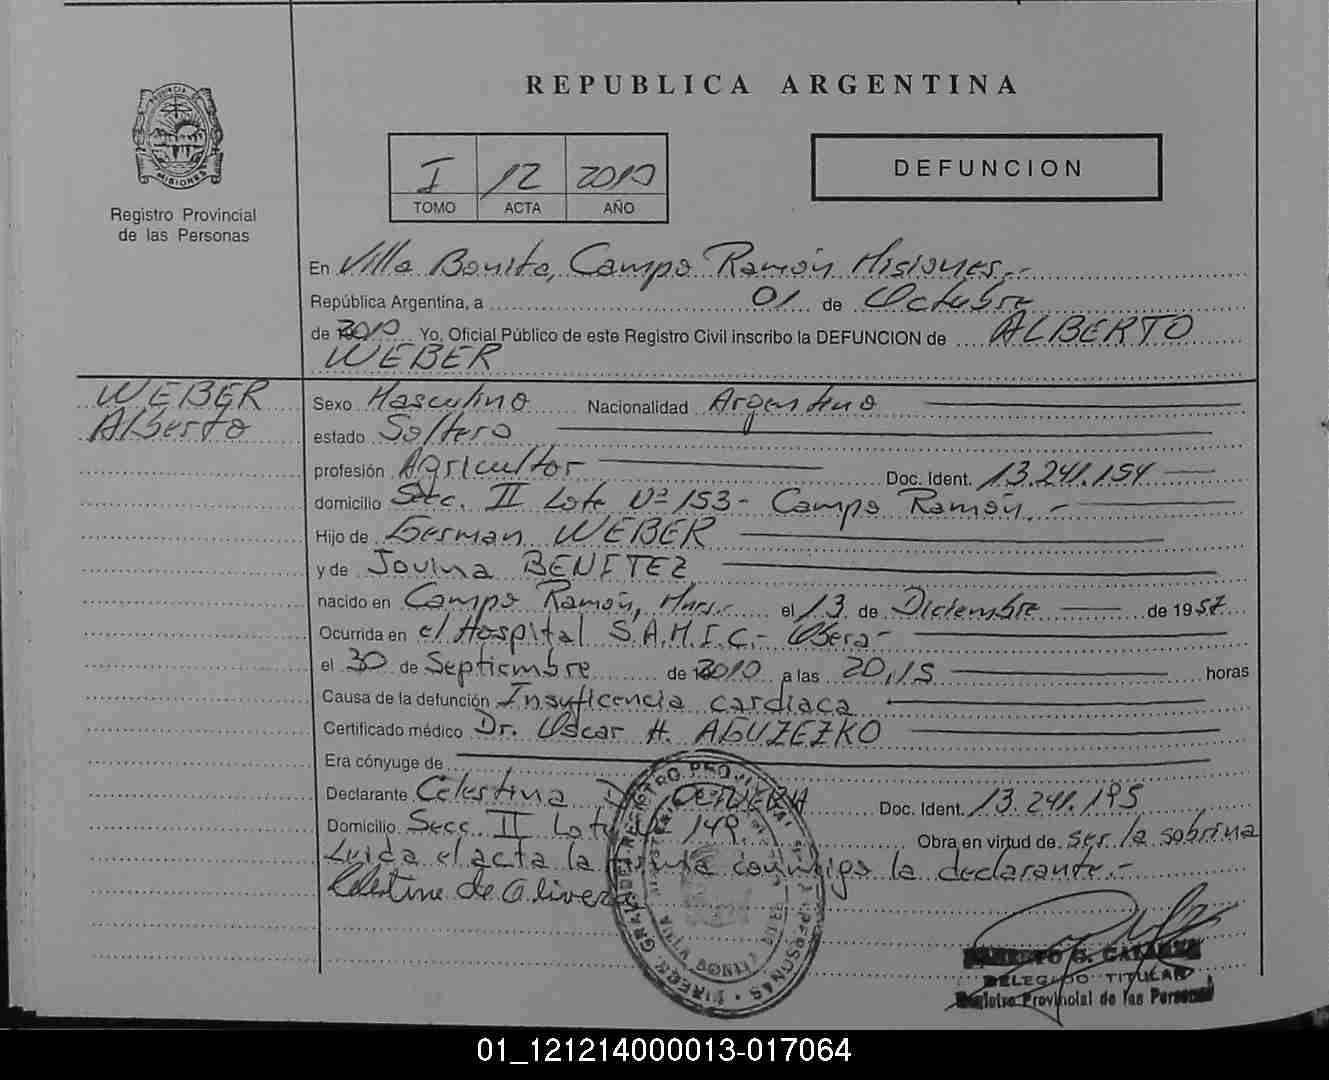 REPUBLICA ARGENTINA
PROVINCIA DE
MISIONES
Registro Provincial
de las Personas
I 12 2010
TOMO ACTA AÑO
DEFUNCION
En Villa Bonita, Campo Ramón Misiones.-
República Argentina, a 01 de Octubre
de 2010 Yo, Oficial Público de este Registro Civil inscribo la DEFUNCION de ALBERTO
WEBER
WEBER
Alberto
Sexo Masculino Nacionalidad Argentino
estado Soltero
profesión Agricultor Doc. Ident. 13.241.154
domicilio Secc. II Lote Nº 153 - Campo Ramón.-
Hijo de German WEBER
y de Jovina BENITEZ
nacido en Campo Ramón, Mnes.- el 13 de Diciembre de 1957
Ocurrida en el Hospital S.A.M.I.C.- Obera-
el 30 de Septiembre de 2010 a las 20,15 horas
Causa de la defunción Insuficencia cardiaca
Certificado médico Dr. Oscar H. AGUZEZKO
Era cónyuge de
Declarante Celestina DE OLIVERA Doc. Ident. 13.241.195
Domicilio Secc. II Lote Nº 149. Obra en virtud de ser la sobrina
Leida el acta la firma conmigo la declarante.-
Celestina de Olivera
VILLA BONITA
DELEGADO TITULAR
Registro Provincial de las Personas
01_121214000013-017064